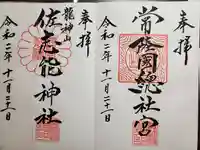 奉拝
常陸國總社宮
令和二年十一月二十一日
奉拝
龍神山
佐志能神社
令和二年十一月二十一日